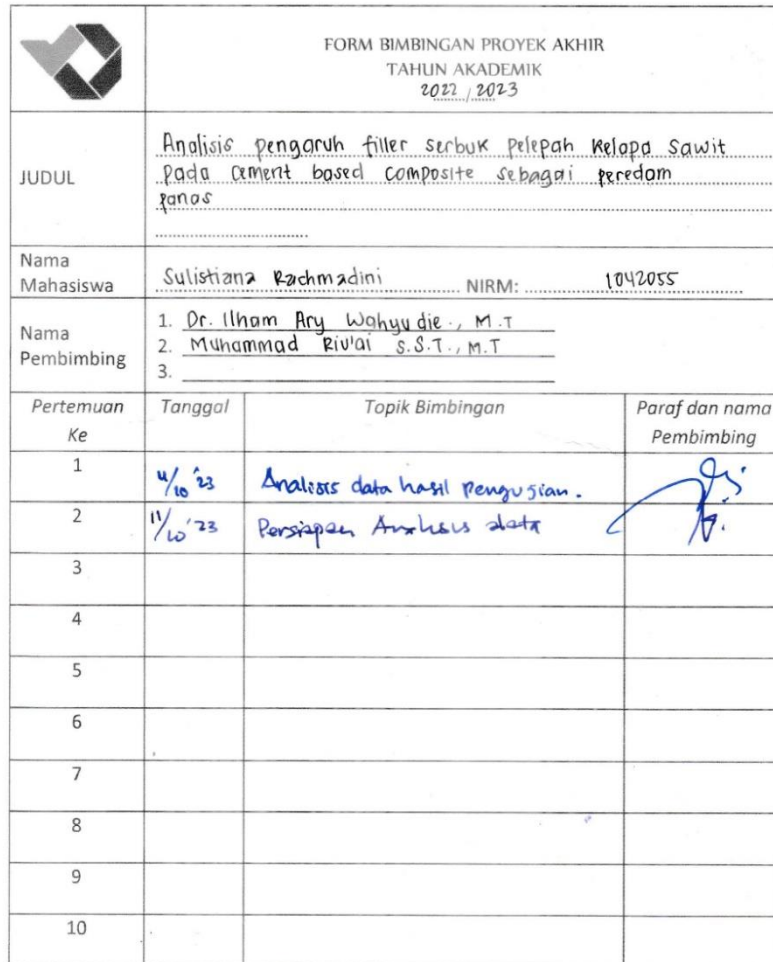 FORM BIMBINGAN PROYEK AKHIR
TAHUN AKADEMIK
2022 / 2023
JUDUL
Analisis pengaruh filler serbuk pelepah kelapa sawit
pada cement based composite sebagai peredam
panas
Nama Mahasiswa Sulistiana Rachmadini NIRM: 1042055
Nama Pembimbing
1. Dr. Ilham Ary Wahyudie., M.T
2. Muhammad Riv'ai S.S.T., M.T
3.
Pertemuan Ke Tanggal Topik Bimbingan Paraf dan nama Pembimbing
1 /10 '23 Analisis data hasil pengujian.
2 11/10 '23 Persiapan Analisis data
3
4
5
6
7
8
9
10